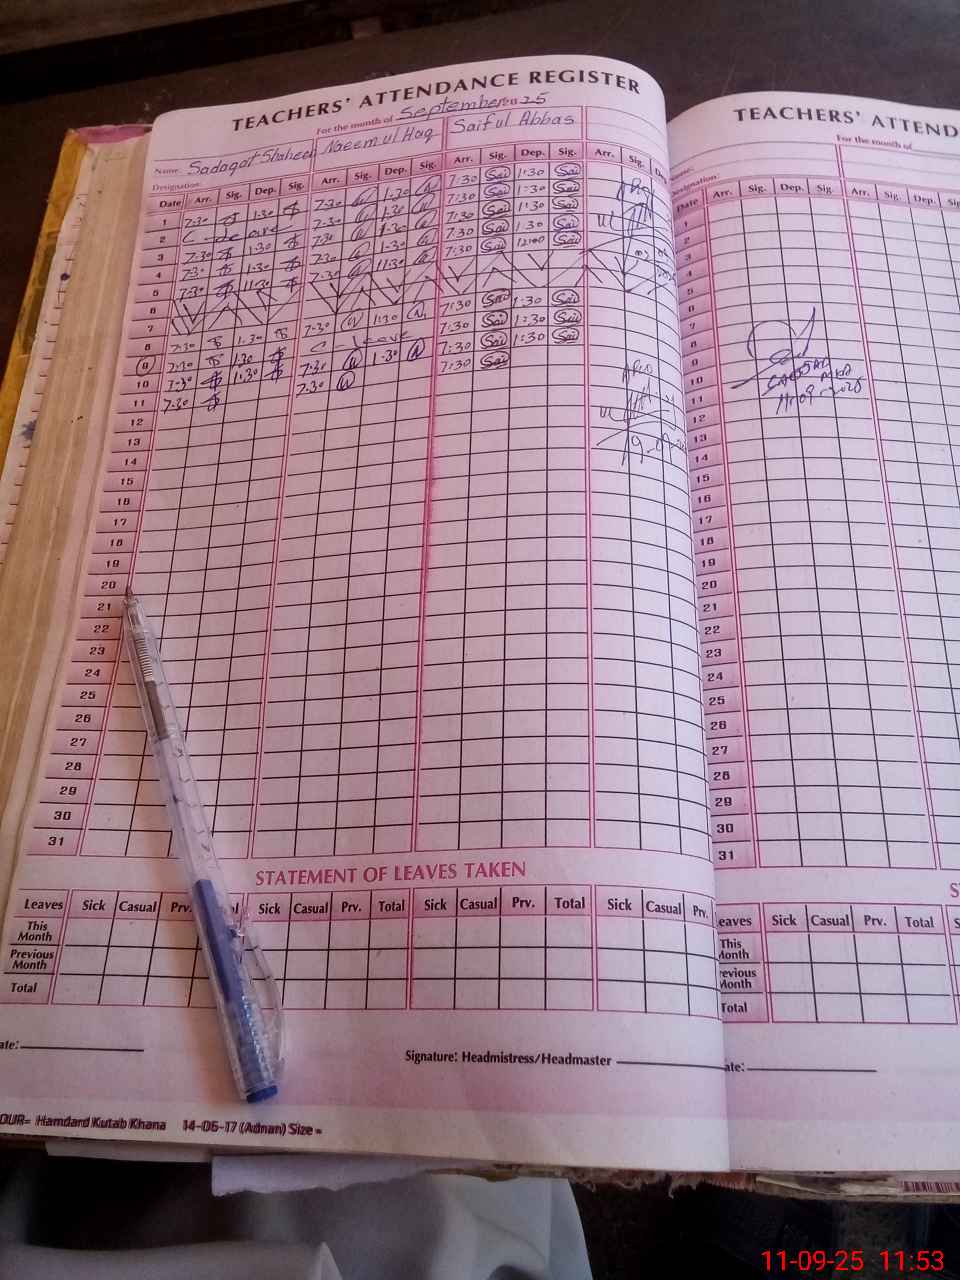 TEACHERS' ATTENDANCE REGISTER
For the month of September 2025
Name: Sadaqat Shaheen Naeemul Haq Saiful Abbas
Designation:
Date Arr. Sig. Dep. Sig. Arr. Sig. Dep. Sig. Arr. Sig. Dep. Sig. Arr. Sig. De
1 7:30 1:30 7:30 1:30 7:30 Sai 1:30 Sai
2 C - leave 7:30 1:30 7:30 Sai 1:30 Sai
3 7:30 1:30 7:30 1:30 7:30 Sai 1:30 Sai
4 7:30 1:30 7:30 1:30 7:30 Sai 1:30 Sai
5 7:30 11:30 7:30 11:30 7:30 Sai 12:00 Sai
6
7
8 7:30 1:30 7:30 1:30 7:30 Sai 1:30 Sai
9 7:30 1:30 leave 7:30 Sai 1:30 Sai
10 7:30 1:30 7:30 1:30 7:30 Sai 1:30 Sai
11 7:30 7:30 7:30 Sai
12
13
14
15
16
17
18
19
20
21
22
23
24
25
26
27
28
29
30
31
STATEMENT OF LEAVES TAKEN
Leaves Sick Casual Prv. Sick Casual Prv. Total Sick Casual Prv. Total Sick Casual Prv.
This Month
Previous Month
Total
ate:
Signature: Headmistress/Headmaster
OUR= Hamdard Kutab Khana 14-06-17 (Adnan) Size =
TEACHERS' ATTEND
For the month of
Name:
Designation:
Date Arr. Sig. Dep. Sig. Arr. Sig. Dep. Sig
1
2
3
4
5
6
7
8
9
10
11
12
13
14
15
16
17
18
19
20
21
22
23
24
25
26
27
28
29
30
31
11-09-2025
ST
eaves Sick Casual Prv. Total S
This Month
revious Month
Total
ate:
11-09-25 11:53